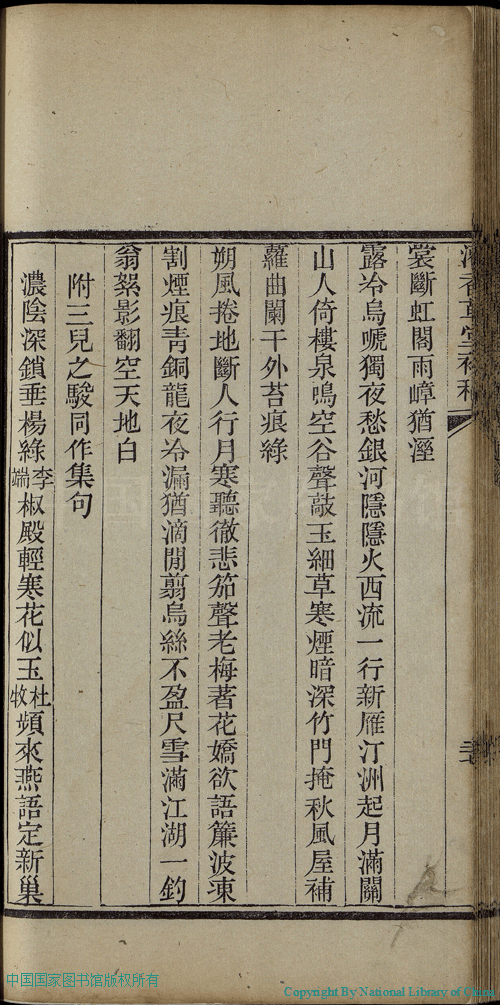 香草堂
裳斷虹閣雨嶂猶溼
露冷烏嗁獨夜愁銀河隱隱火西流一行新雁汀洲起月滿關
山人倚樓泉鳴空谷聲敲玉細草寒煙暗深竹門掩秋風屋補
蘿曲闌干外苔痕綠
朔風捲地斷人行月寒聽徹悲笳聲老梅著花嬌欲語簾波凍
割煙痕青銅龍夜冷漏猶滴閒翦烏絲不盈尺雪滿江湖一釣
翁絮影翻空天地白
附三兒之駿同作集句
濃陰深鎖垂楊綠李端椒殿輕寒花似玉杜牧頻來燕語定新巢
中国国家图书馆版权所有
Copyright By National Library of China